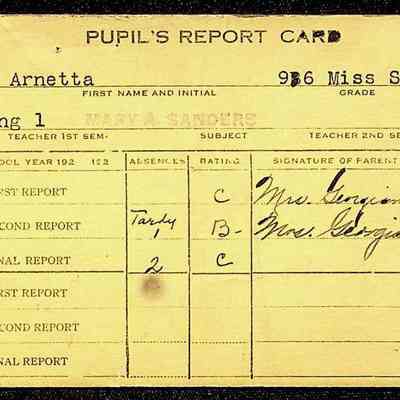 PUPIL'S REPORT CARD
Arnetta 936 Miss S
FIRST NAME AND INITIAL GRADE
ng 1 MARY A SANDERS
TEACHER 1ST SEM- SUBJECT TEACHER 2ND SE
OOL YEAR 192 192 ABSENCES RATING SIGNATURE OF PARENT
RST REPORT C Mrs. Georgian
COND REPORT Tardy 1 B- Mrs. Georgia
NAL REPORT 2 C
RST REPORT
COND REPORT
NAL REPORT